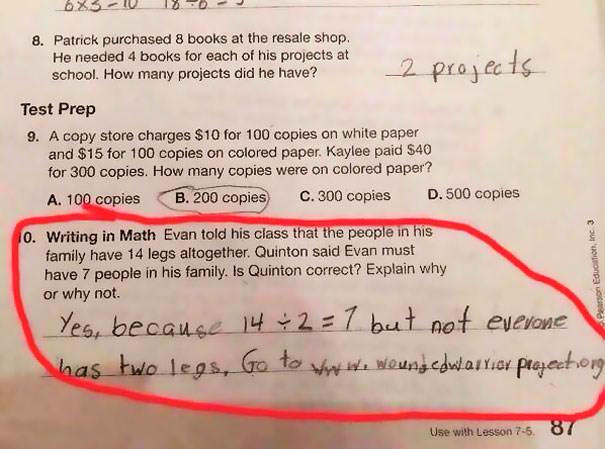 6x3=10 18÷6=3
8. Patrick purchased 8 books at the resale shop.
He needed 4 books for each of his projects at
school. How many projects did he have?
2 projects
Test Prep
9. A copy store charges $10 for 100 copies on white paper
and $15 for 100 copies on colored paper. Kaylee paid $40
for 300 copies. How many copies were on colored paper?
A. 100 copies B. 200 copies C. 300 copies D. 500 copies
0. Writing in Math Evan told his class that the people in his
family have 14 legs altogether. Quinton said Evan must
have 7 people in his family. Is Quinton correct? Explain why
or why not.
Yes, because 14 ÷ 2 = 7 but not everone
has two legs, Go to www.woundedwarrior project.org
Pearson Education, Inc. 3
Use with Lesson 7-5. 87